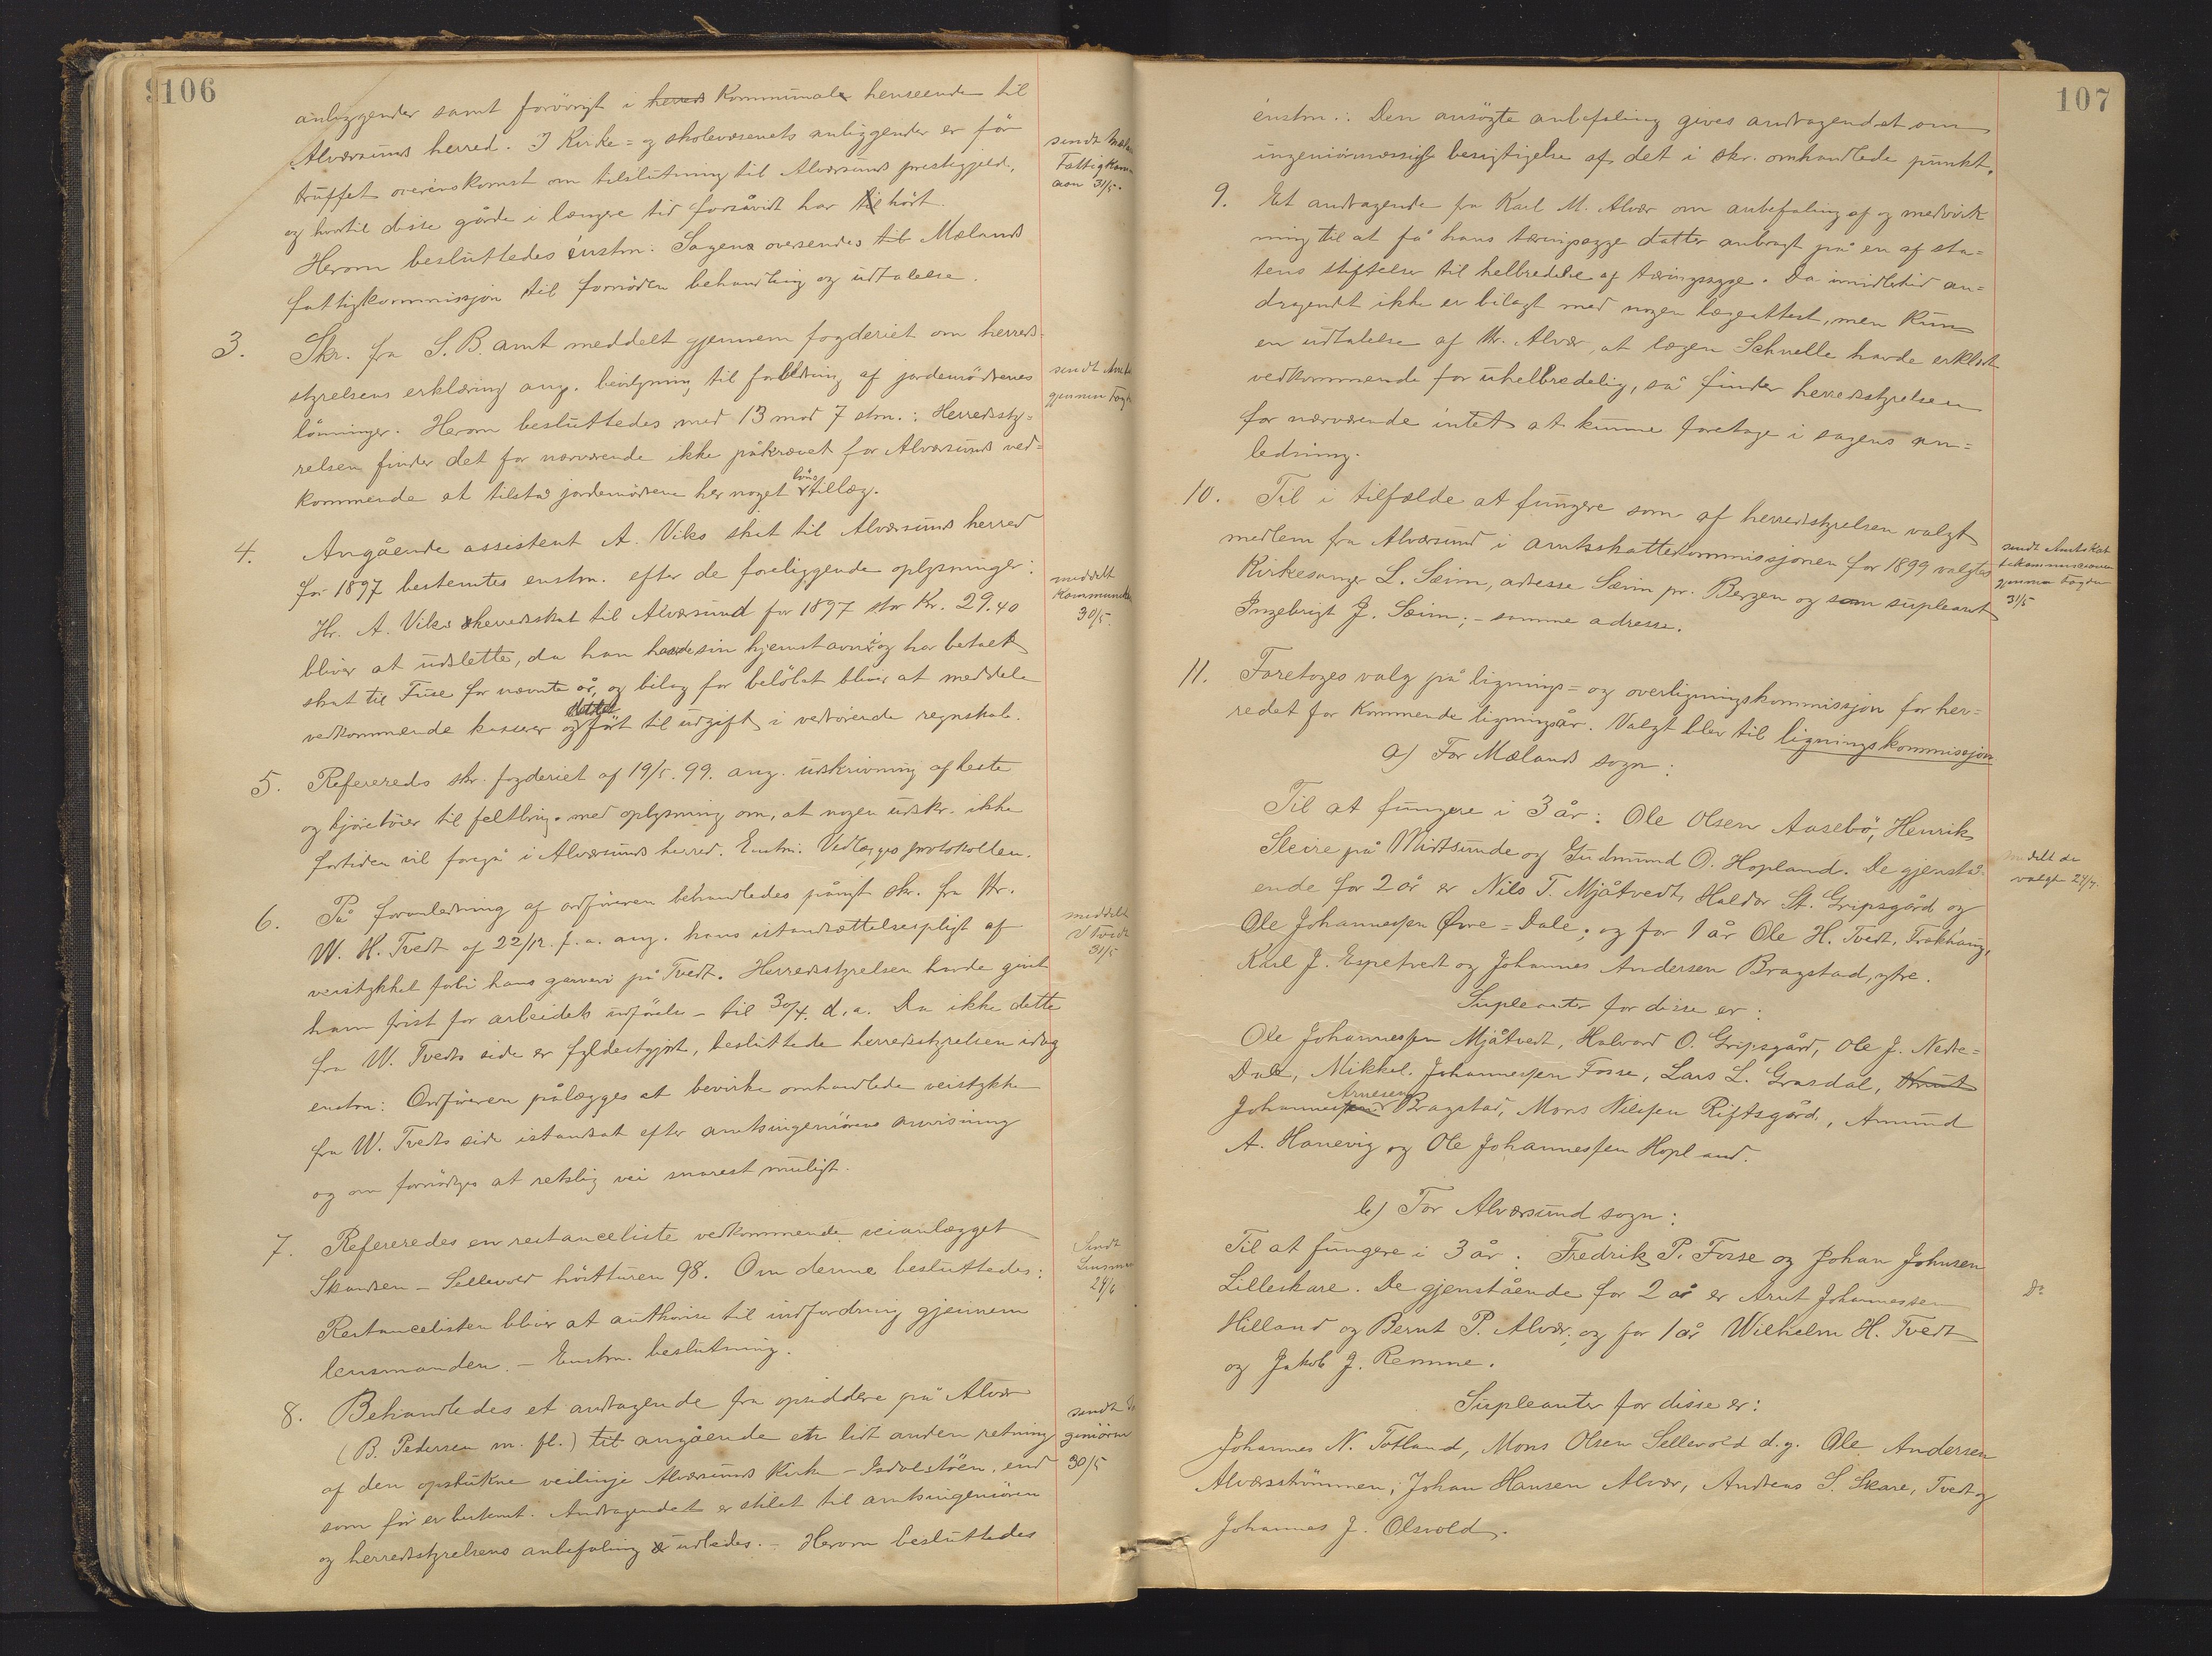 106
anliggender samt forövrigt i herreds kommunale henseende til
Alværsunds herred. I Kirke- og skolevæsenets anliggender er för
truffet overénskomst om tilslutning til Alværsunds prestegjeld,
og hvortil disse gårde i længere tid forsåvidt har til hört.
Herom besluttedes énstm: Sagens oversendes til Mælands
fattigkommissjon til fornöden behandling og udtalelse.
sendt Mæl
Fattigkom
aon 31/5.
3. Skr. fra S. B. amt meddelt gjennem fogderiet om herreds-
styrelsens erklæring ang. bevilgning til forbedring af jordemödrenes
lönninger. Herom besluttedes med 13 mod 7 stm.: Herredssty-
relsen finder det for nærværende ikke påkrævet for Alværsunds ved-
kommende at tilstå jordemödrene her noget löns tillæg.
sendt Amtet
gjennem Fogd
4. Angående assistent A. Viks skat til Alværsunds herred
for 1897 bestemtes enstm. efter de foreliggende oplysninger:
Hr. A. Viks herredsskat til Alværsund for 1897 stor Kr. 29.40
bliver at udslette, da han havde sin hjemstavn i og har betalt
skat til Fuse for nævnte år, og bilag for belöbet bliver at meddele
vedkommende kasserer og fört til udgift i vedrörende regnskab.
meddelt
Kommunek
30/5.
5. Refereredes skr. fogderiet af 19/5. 99. ang. udskrivning af heste
og kjöretöier til feltbrug. med oplysning om, at nogen udskr. ikke
fortiden vil foregå i Alværsunds herred. Enstm. Vedlægges protokollen.
6. På foranledning af ordföreren behandledes pånyt skr. fra Hr.
W. H. Tvedt af 22/12. f. a. ang. hans istandsættelsespligt af
veistykket forbi hans garveri på Tvedt. Herredsstyrelsen havde givet
ham frist for arbeidets udförelse - til 30/4. d. a. Da ikke dette
fra W. Tvedts side er fyldestgjort, besluttede herredsstyrelsen idag
enstm: Ordföreren pålægges at bevirke omhandlede veistykke
fra W. Tvedts side istandsat efter amtsingeniörens anvisning
og om fornödiges at retslig vei snarest muligt.
meddelt
V Tvedt
31/5
7. Refereredes en restanceliste vedkommende veianlægget
Skandsen - Sellevold hösttúren 98. Om denne besluttedes:
Restancelisten bliver at authorise til indfordring gjennem
lensmanden. - Enstm. beslutning.
Sendt
Lensman
24/6
8. Behandledes et andragende fra opsiddere på Alvær
(B. Pedersen m. fl.) til angående en lidt anden retning
af den opstukne veilinje Alværsunds Kirke - Isdalstöen, end
som för er bestemt. Andragendet er stilet til amtsingeniören
og herredsstyrelsens anbefaling udbedes. - Herom besluttedes
sendt In
geniören
30/5
107
énstm.: Den ansögte anbefaling gives andragendet om
ingeniörmæssige besigtigelse af det i skr. omhandlede punkt.
9. Et andragende fra Karl M. Alvær om anbefaling af og medvirk
ning til at få hans tæringssyge datter anbragt på en af sta-
tens stiftelser til helbredelse af tæringssyge. Da imidlertid an-
dragendet ikke er bilagt med nogen lægeattest, men kun
en udtalelse af Hr. Alvær, at lægen Schnelle havde erklært
vedkommende for uhelbredelig, så finder herredsstyrelsen
for nærværende intet at kunne foretage i sagens an-
ledning.
10. Til i tilfælde at fungere som af herredsstyrelsen valgt
medlem fra Alværsund i amtsskattekommissjonen for 1899 valgtes
Kirkesanger L. Sæim, adresse Sæim pr. Bergen og som supleant
Ingebrigt J. Sæim; - samme adresse.
sendt Amtskat
tekommissionen
gjennem Fogden
31/5
11. Foretoges valg på lignings- og overligningskommissjon for her-
redet for kommende ligningsår. Valgt blev til ligningskommissjon
a) For Mælands sogn:
Til at fungere i 3 år: Ole Olsen Aasebö, Henrik
Sleire på Midtsunde og Gudmund O. Hopland. De gjenstå-
ende for 2 år er Nils T. Mjåtvedt, Haldor St. Gripsgård og
Ole Johannessen Övre-Dale; og for 1 år Ole H. Tvedt, Trokhaug,
Karl J. Espetvedt og Johannes Andersen Bragstad, ytre.
meddelt de
valgte 24/7.
Supleanter for disse er:
Ole Johannessen Mjåtvedt, Halvard O. Gripsgård, Ole J. Nedre-
Dale, Mikkel Johannessen Fosse, Lars L. Grasdal, Knut
Johannessen Arnesen Bragstad, Mons Nilssen Riftsgård, Amund
A. Hanevig og Ole Johannessen Hopland.
b) For Alværsund sogn:
Til at fungere i 3 år: Fredrik P. Fosse og Johan Johnsen
Lilleskare. De gjenstående for 2 år er Arnt Johannessen
Hilland og Bernt P. Alvær; og for 1 år Wilhelm H. Tvedt
og Jakob J. Remme.
Do
Supleanter for disse er:
Johannes N. Totland, Mons Olsen Sellevold d.y. Ole Andersen
Alværsströmmen; Johan Hansen Alvær, Andreas S. Skare, Tvedt og
Johannes J. Olsvold.